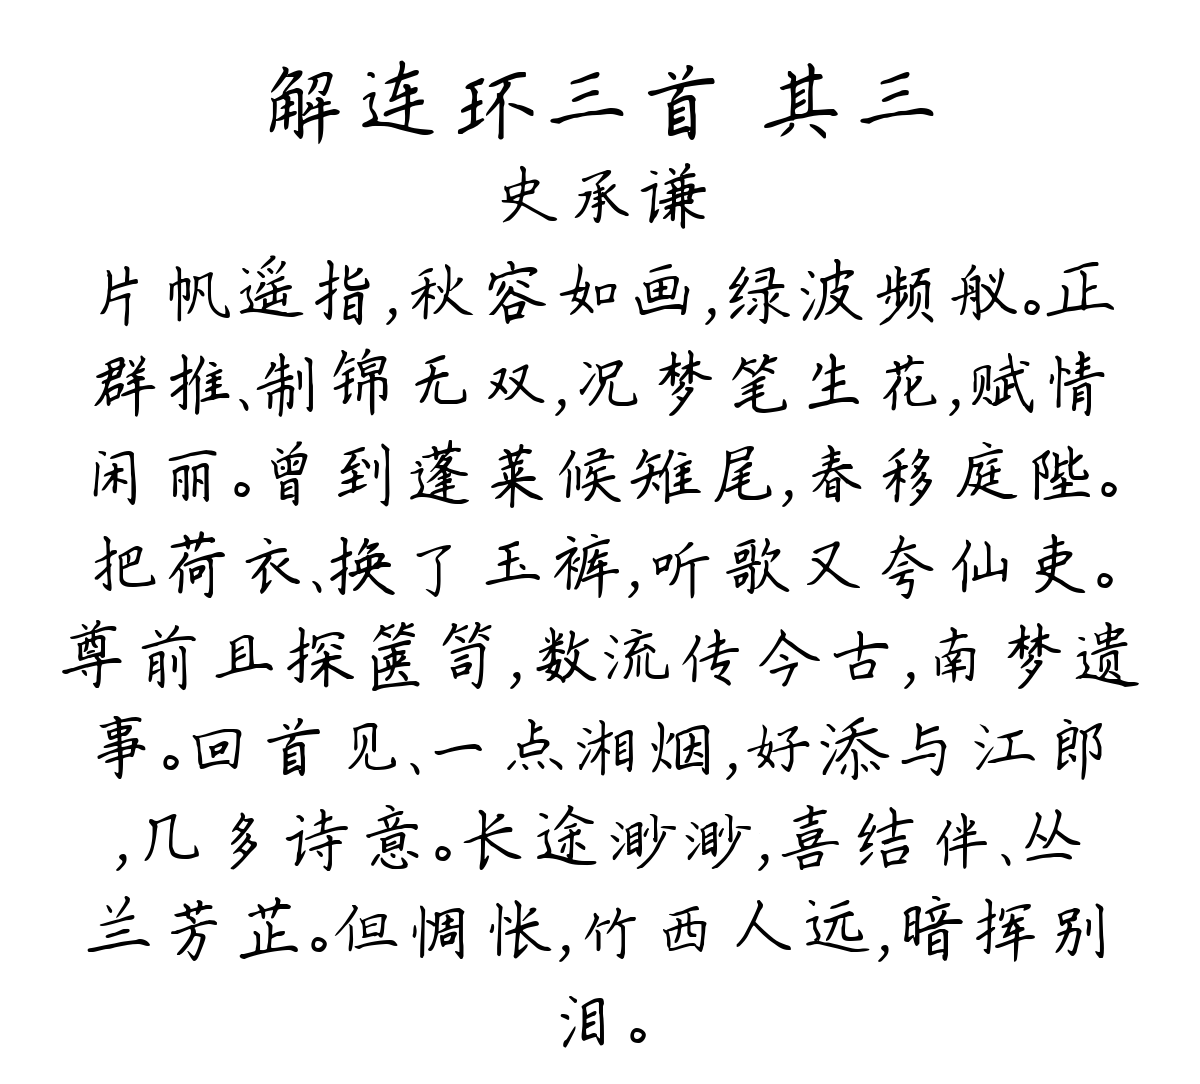 解连环三首 其三
史承谦
片帆遥指,秋容如画,绿波频舣。正
群推、制锦无双,况梦笔生花,赋情
闲丽。曾到蓬莱候雉尾,春移庭陛。
把荷衣、换了玉裤,听歌又夸仙吏。
尊前且探箧笥,数流传今古,南梦遗
事。回首见、一点湘烟,好添与江郎
,几多诗意。长途渺渺,喜结伴、丛
兰芳芷。但惆怅,竹西人远,暗挥别
泪。